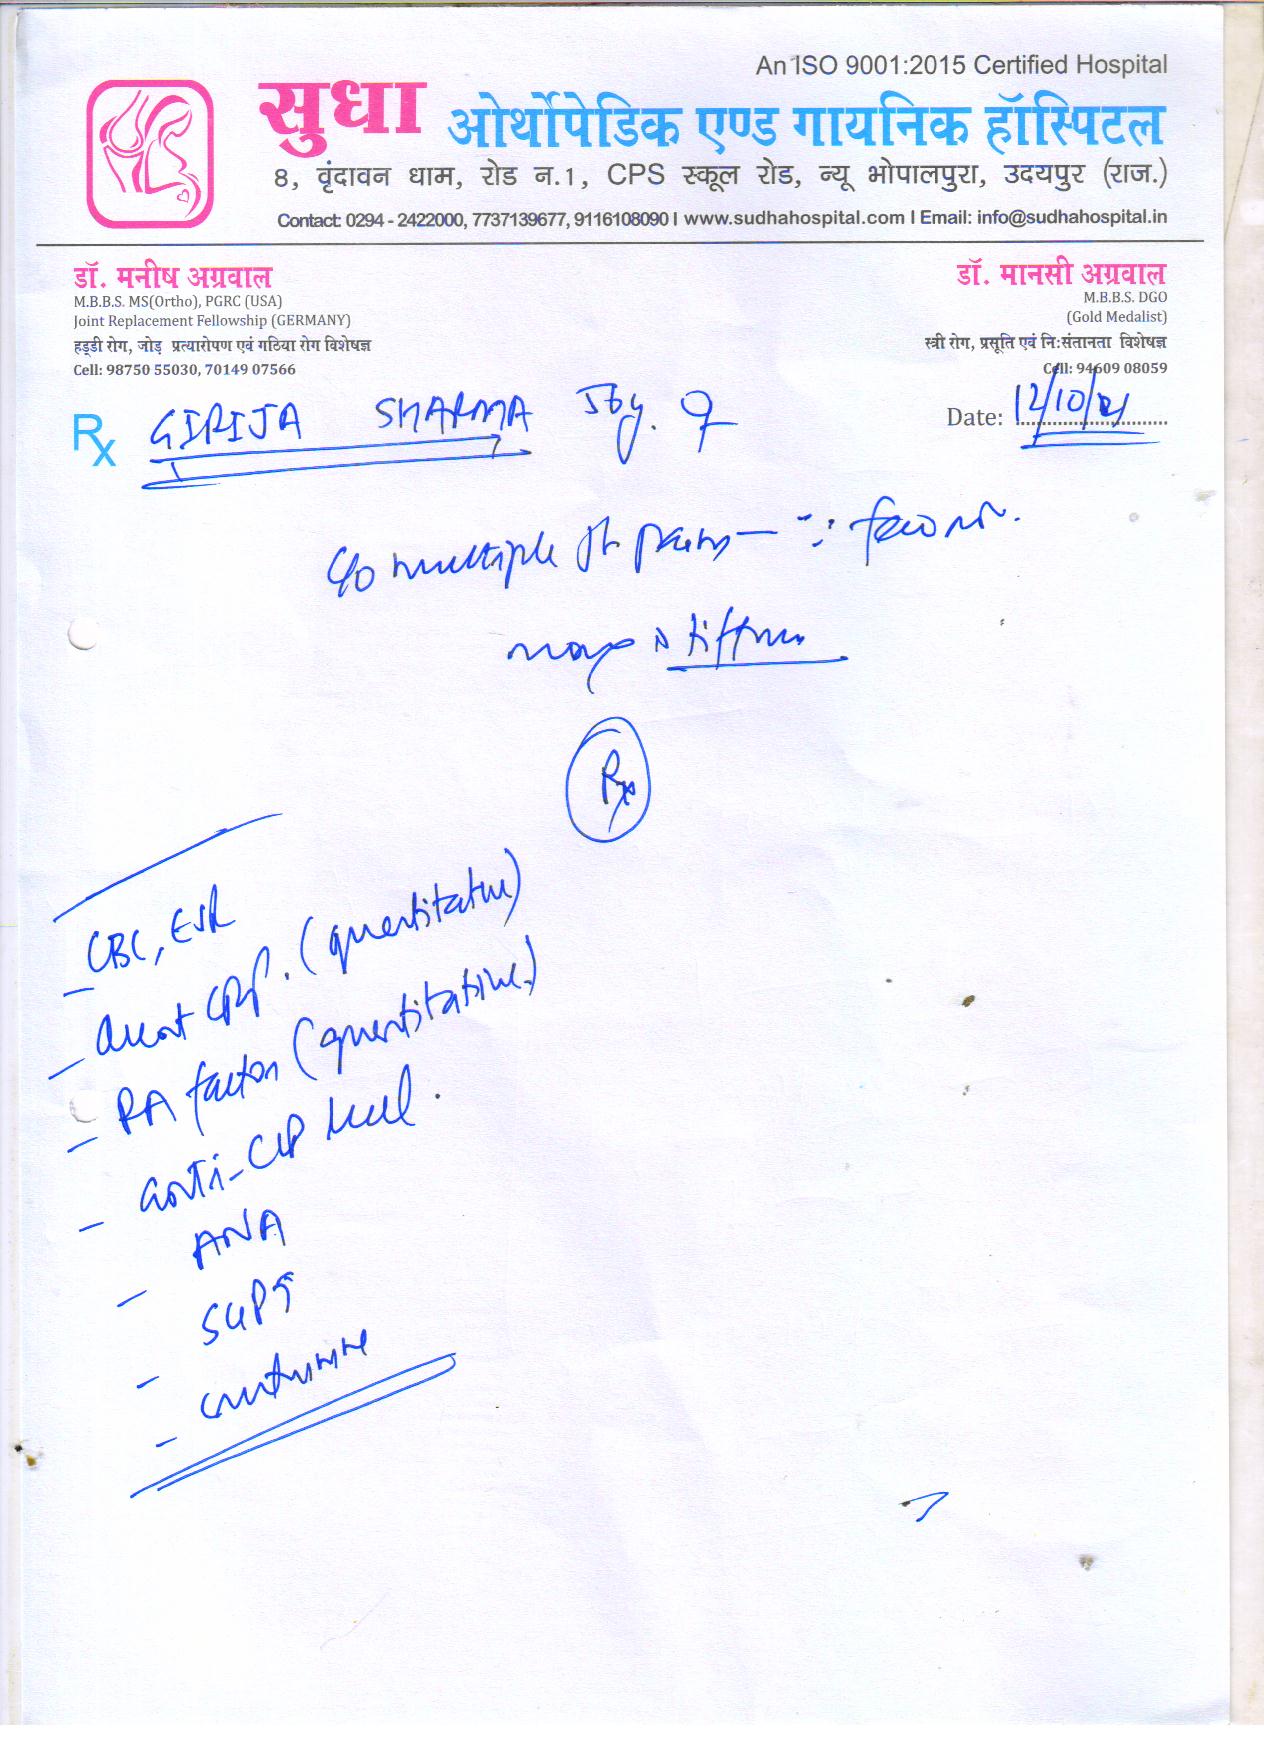 An ISO 9001:2015 Certified Hospital
सुधा ओर्थोपेडिक एण्ड गायनिक हॉस्पिटल
8, वृंदावन धाम, रोड न.1, CPS स्कूल रोड, न्यू भोपालपुरा, उदयपुर (राज.)
Contact: 0294 - 2422000, 7737139677, 9116108090 I www.sudhahospital.com I Email: info@sudhahospital.in
डॉ. मनीष अग्रवाल
M.B.B.S. MS(Ortho), PGRC (USA)
Joint Replacement Fellowship (GERMANY)
हड्डी रोग, जोड़ प्रत्यारोपण एवं गठिया रोग विशेषज्ञ
Cell: 98750 55030, 70149 07566
डॉ. मानसी अग्रवाल
M.B.B.S. DGO
(Gold Medalist)
स्त्री रोग, प्रसूति एवं नि:संतानता विशेषज्ञ
Cell: 94609 08059
Rx GIRIJA SHARMA ♀
Date: 12/10/21
c/o multiple jt pain
stiffness
Rx
- CBC, ESR
- CRP. (quantitative)
- RA factor (quantitative)
- anti-CCP level.
- ANA
- SGPT
- creatinine